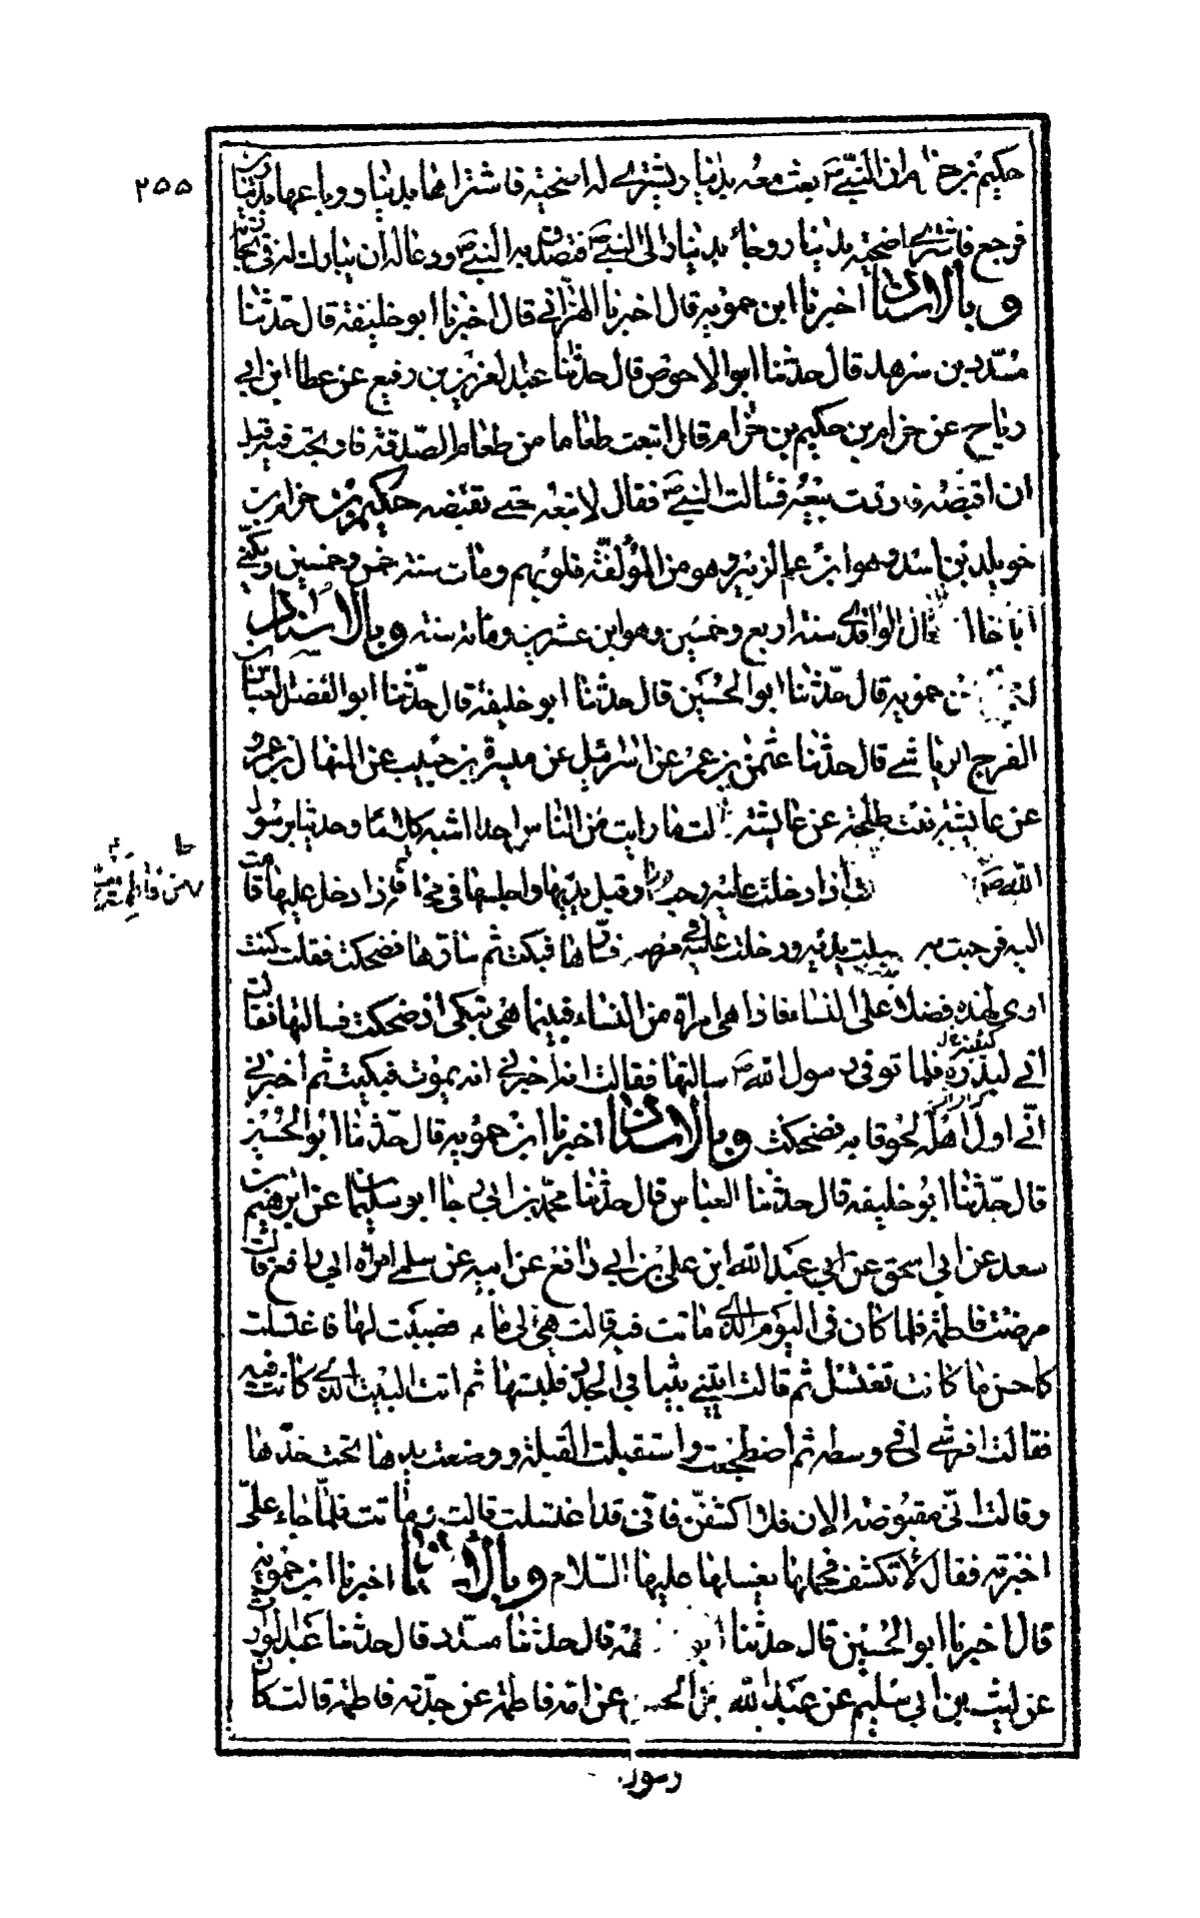 ٢٥٥
حكيم بن حزام ان النبي ص بعث معه بدينار يشتري له اضحية فاشتراها بدينار وباعها بدينارين
فرجع فاشترى اضحية بدينار وجاء بدينار الى النبي ص فتصدق به النبي ص ودعا له ان يبارك له في تجارته
وبالاسناد اخبرنا ابن حمويه قال اخبرنا الهزاني قال اخبرنا ابو خليفة قال حدثنا
مسدد بن سرهد قال حدثنا ابو الاحوص قال حدثنا عبد العزيز بن رفيع عن عطا ابن ابي
رباح عن حزام بن حكيم بن حزام قال ابتعت طعاما من طعام الصدقة فاربحت فيه قبل
ان اقبضه فاردت بيعه فسالت النبي ص فقال لا تبعه حتى تقبضه حكيم بن حزام بن
خويلد بن اسد وهو ابن عم الزبير وهو من المؤلفة قلوبهم ومات سنة خمس وخمسين ويكنى
ابا خا قال الواقدي سنة اربع وخمسين وهو ابن عشرين ومائة سنة وبالاسناد
بن حمويه قال حدثنا ابو الحسين قال حدثنا ابو خليفة قال حدثنا ابو الفضل العباس بن
الفرج الرياشي قال حدثنا عثمن بن عمر عن اسرئيل عن ميسرة بن حبيب عن المنهال بن عمرو
عن عايشة بنت طلحة عن عايشة لت ما رايت من الناس احدا اشبه كلاما وحديثا برسول
الله ص اذا دخلت عليه رحب وقبل يديها واجلسها في مجلسه فاذا دخل عليها قامت
من فاطمة
اليه فرحبت به يديه ودخلت عليه في مرضه فسارها فبكت ثم سارها فضحكت فقلت كنت
ارى لهذه فضلا على النساء فاذا هي امراة من النساء فبينما هي تبكي اذ ضحكت فسالتها فقالت
اني لبذرة فلما توفي رسول الله ص سالتها فقالت انه اخبرني انه يموت فبكيت ثم اخبرني
اني اول اهله لحوقا به فضحكت وبالاسناد اخبرنا ابن حمويه قال حدثنا ابو الحسين
قال حدثنا ابو خليفة قال حدثنا العباس قال حدثنا محمد بن ابي رجا ابو سليمان عن ابرهيم بن
سعد عن ابي اسحق عن ابي عبد الله ابن علي بن ابي رافع عن ابيه عن سلمى امراة ابي رافع قالت
مرضت فاطمة فلما كان في اليوم الذي ماتت فيه قالت هيئي لي ماء فصببت لها فاغتسلت
كاحسن ما كانت تغتسل ثم قالت ايتيني بثيابي الجدد فلبستها ثم اتت البيت الذي كانت فيه
فقالت افرشي لي في وسطه ثم اضطجعت واستقبلت القبلة ووضعت يدها تحت خدها
وقالت اني مقبوضة الان فلا اكشفن فاني قد اغتسلت قالت وماتت فلما جاء علي
اخبرته فقال لا تكشف فحملها بغسلها عليها السلام وبالاسناد اخبرنا ابن حمويه
قال اخبرنا ابو الحسين قال حدثنا ابو خليفة قال حدثنا مسدد قال حدثنا عبد الوارث
عن ليث بن ابي سليم عن عبد الله بن الحسن عن امه فاطمة عن جدته فاطمة قالت كان
رسول